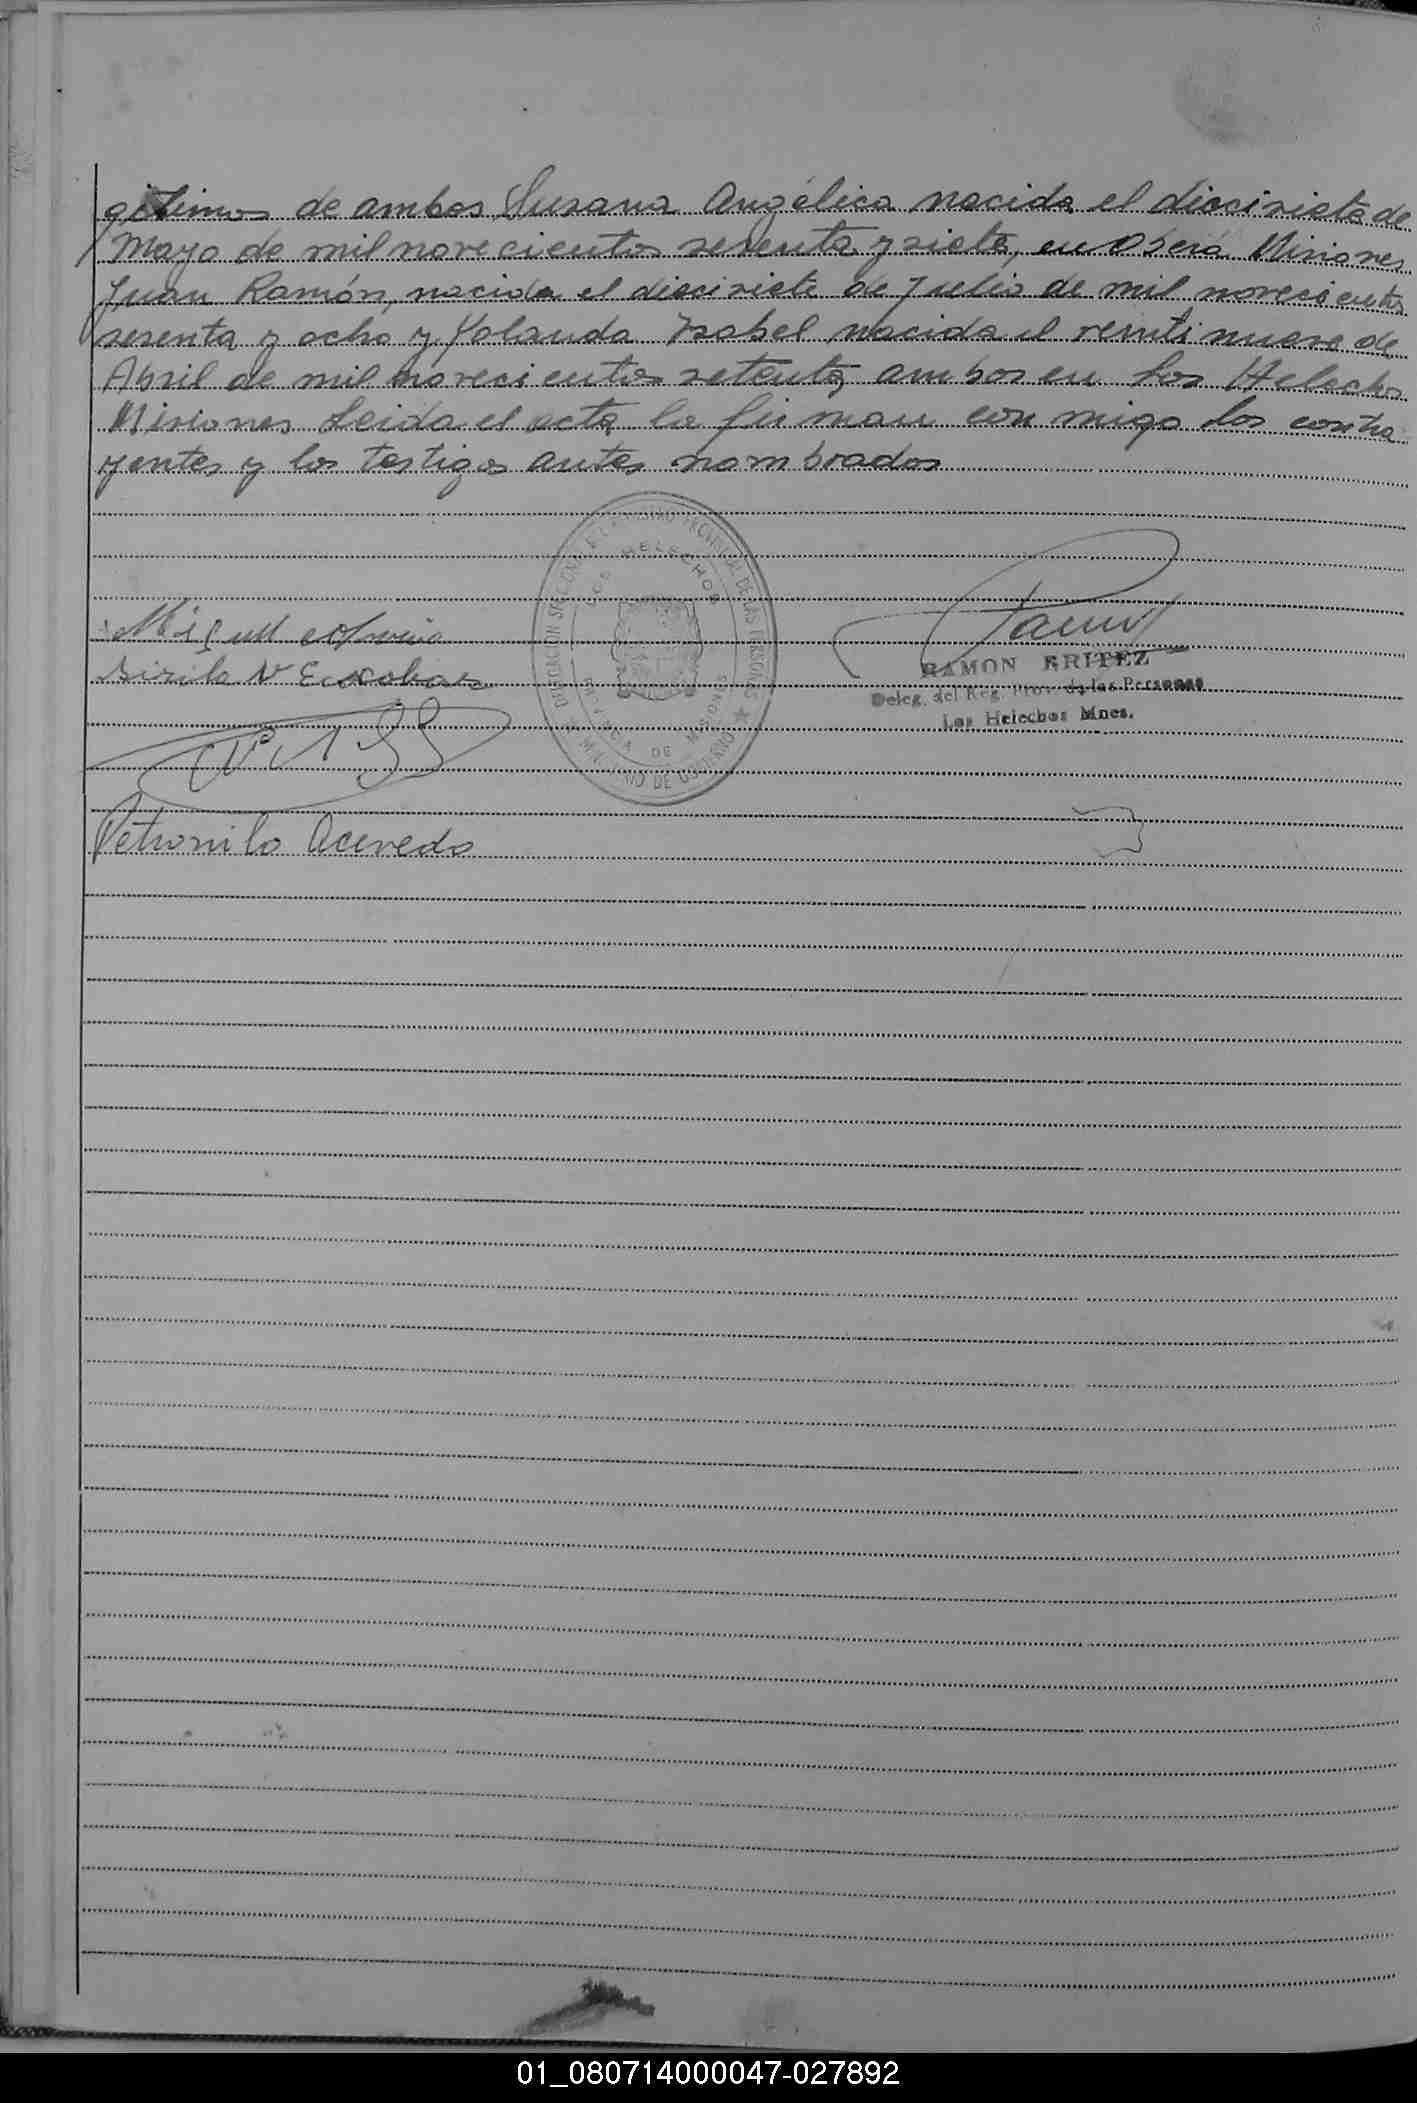 gitimos de ambos Susana Angélica nacida el diecisiete de
Mayo de mil novecientos sesenta y siete, en Oberá Misiones
Juan Ramón, nacido el diecisiete de Julio de mil novecientos
sesenta y ocho y Yolanda Isabel nacida el veintinueve de
Abril de mil novecientos setenta, ambos en Los Helechos
Misiones Leida el acta la firman con migo los contra
yentes y los testigos antes nombrados
DELEGACION SECCIONAL REGISTRO PROVINCIAL DE LAS PERSONAS
LOS HELECHOS
PROVINCIA DE MISIONES
MINISTERIO DE GOBIERNO
RAMON BRITEZ
Deleg. del Reg. Prov. de las Personas
Los Helechos Mnes.
Miguel
Sirila V Escobar
Petronilo Acevedo
01_080714000047-027892